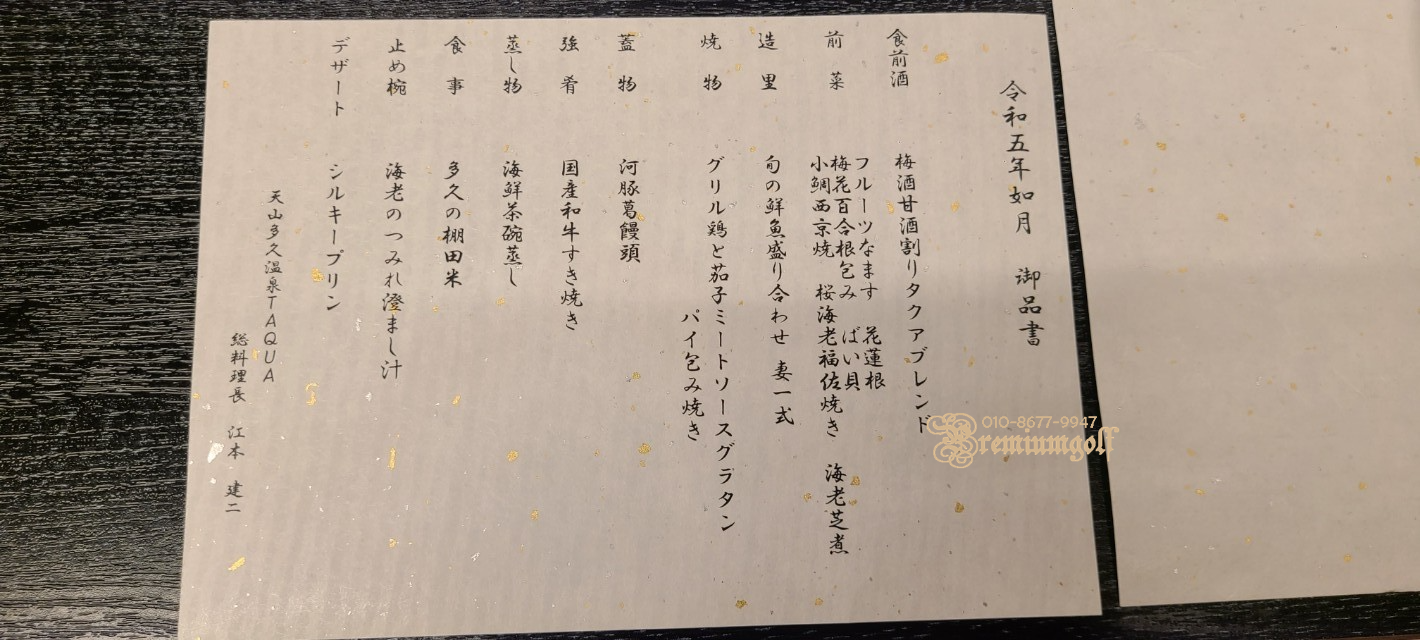 令和五年如月 御品書
食前酒 梅酒甘酒割りタクアブレンド
前菜 フルーツなます 花蓮根
梅花百合根包み ばい貝
小鯛西京焼 桜海老福佐焼き 海老芝煮
造里 旬の鮮魚盛り合わせ 妻一式
焼物 グリル鶏と茄子ミートソースグラタン
パイ包み焼き
蓋物 河豚葛饅頭
強肴 国産和牛すき焼き
蒸し物 海鮮茶碗蒸し
食事 多久の棚田米
止め椀 海老のつみれ澄まし汁
デザート シルキープリン
天山多久温泉TAQUA
総料理長 江本 建二
010-8677-9947
Premiumgolf